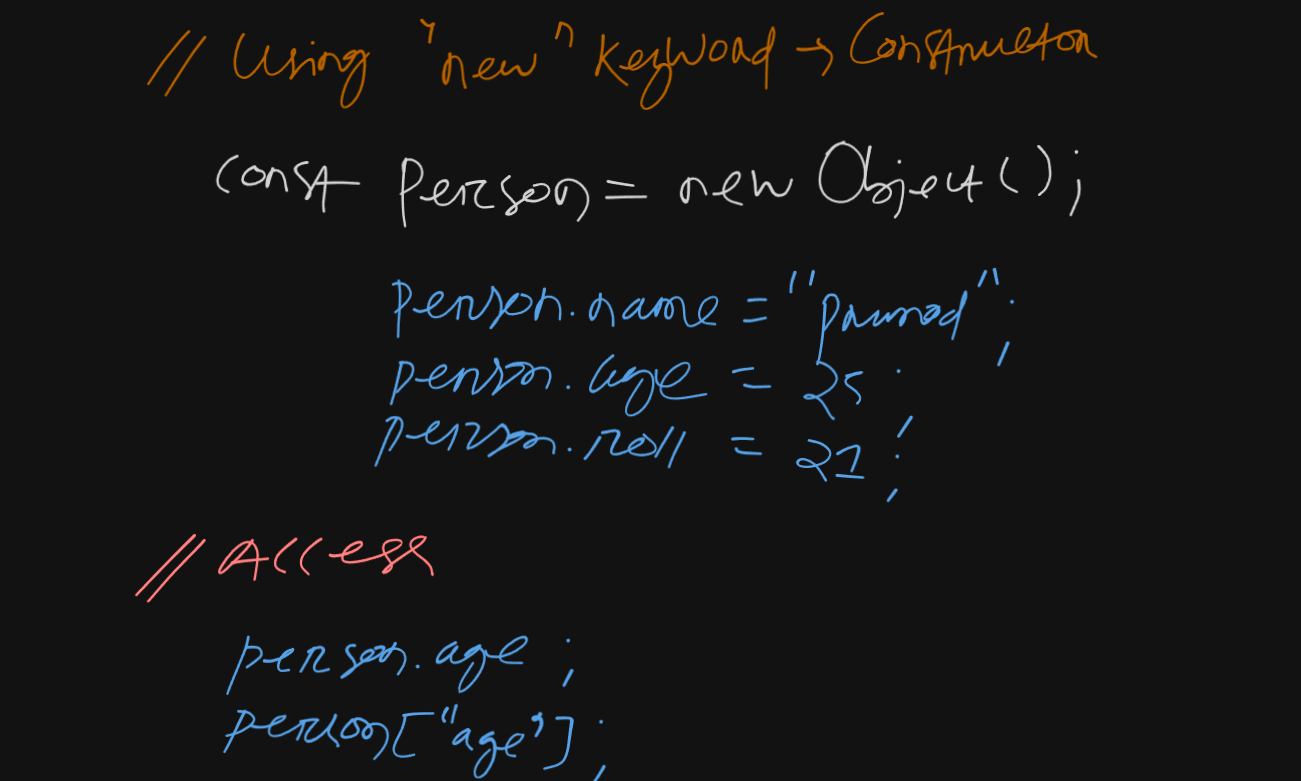 // Using "new" Keyword → Constructor
const Person = new Object();
person.name = "Pramod";
person.age = 25;
person.roll = 21;
// Access
person.age;
person["age"];